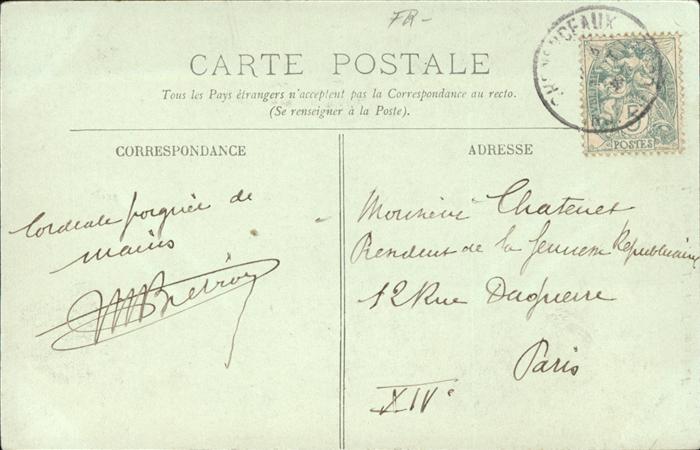 FR-
CARTE POSTALE
Tous les Pays étrangers n'acceptent pas la Correspondance au recto.
(Se renseigner à la Poste).
CORRESPONDANCE
Cordiale poignée de
mains
ADRESSE
5
POSTES
Monsieur Chatenet
de la Jeunesse Republicaine
12 Rue Daguerre
Paris
XIVe